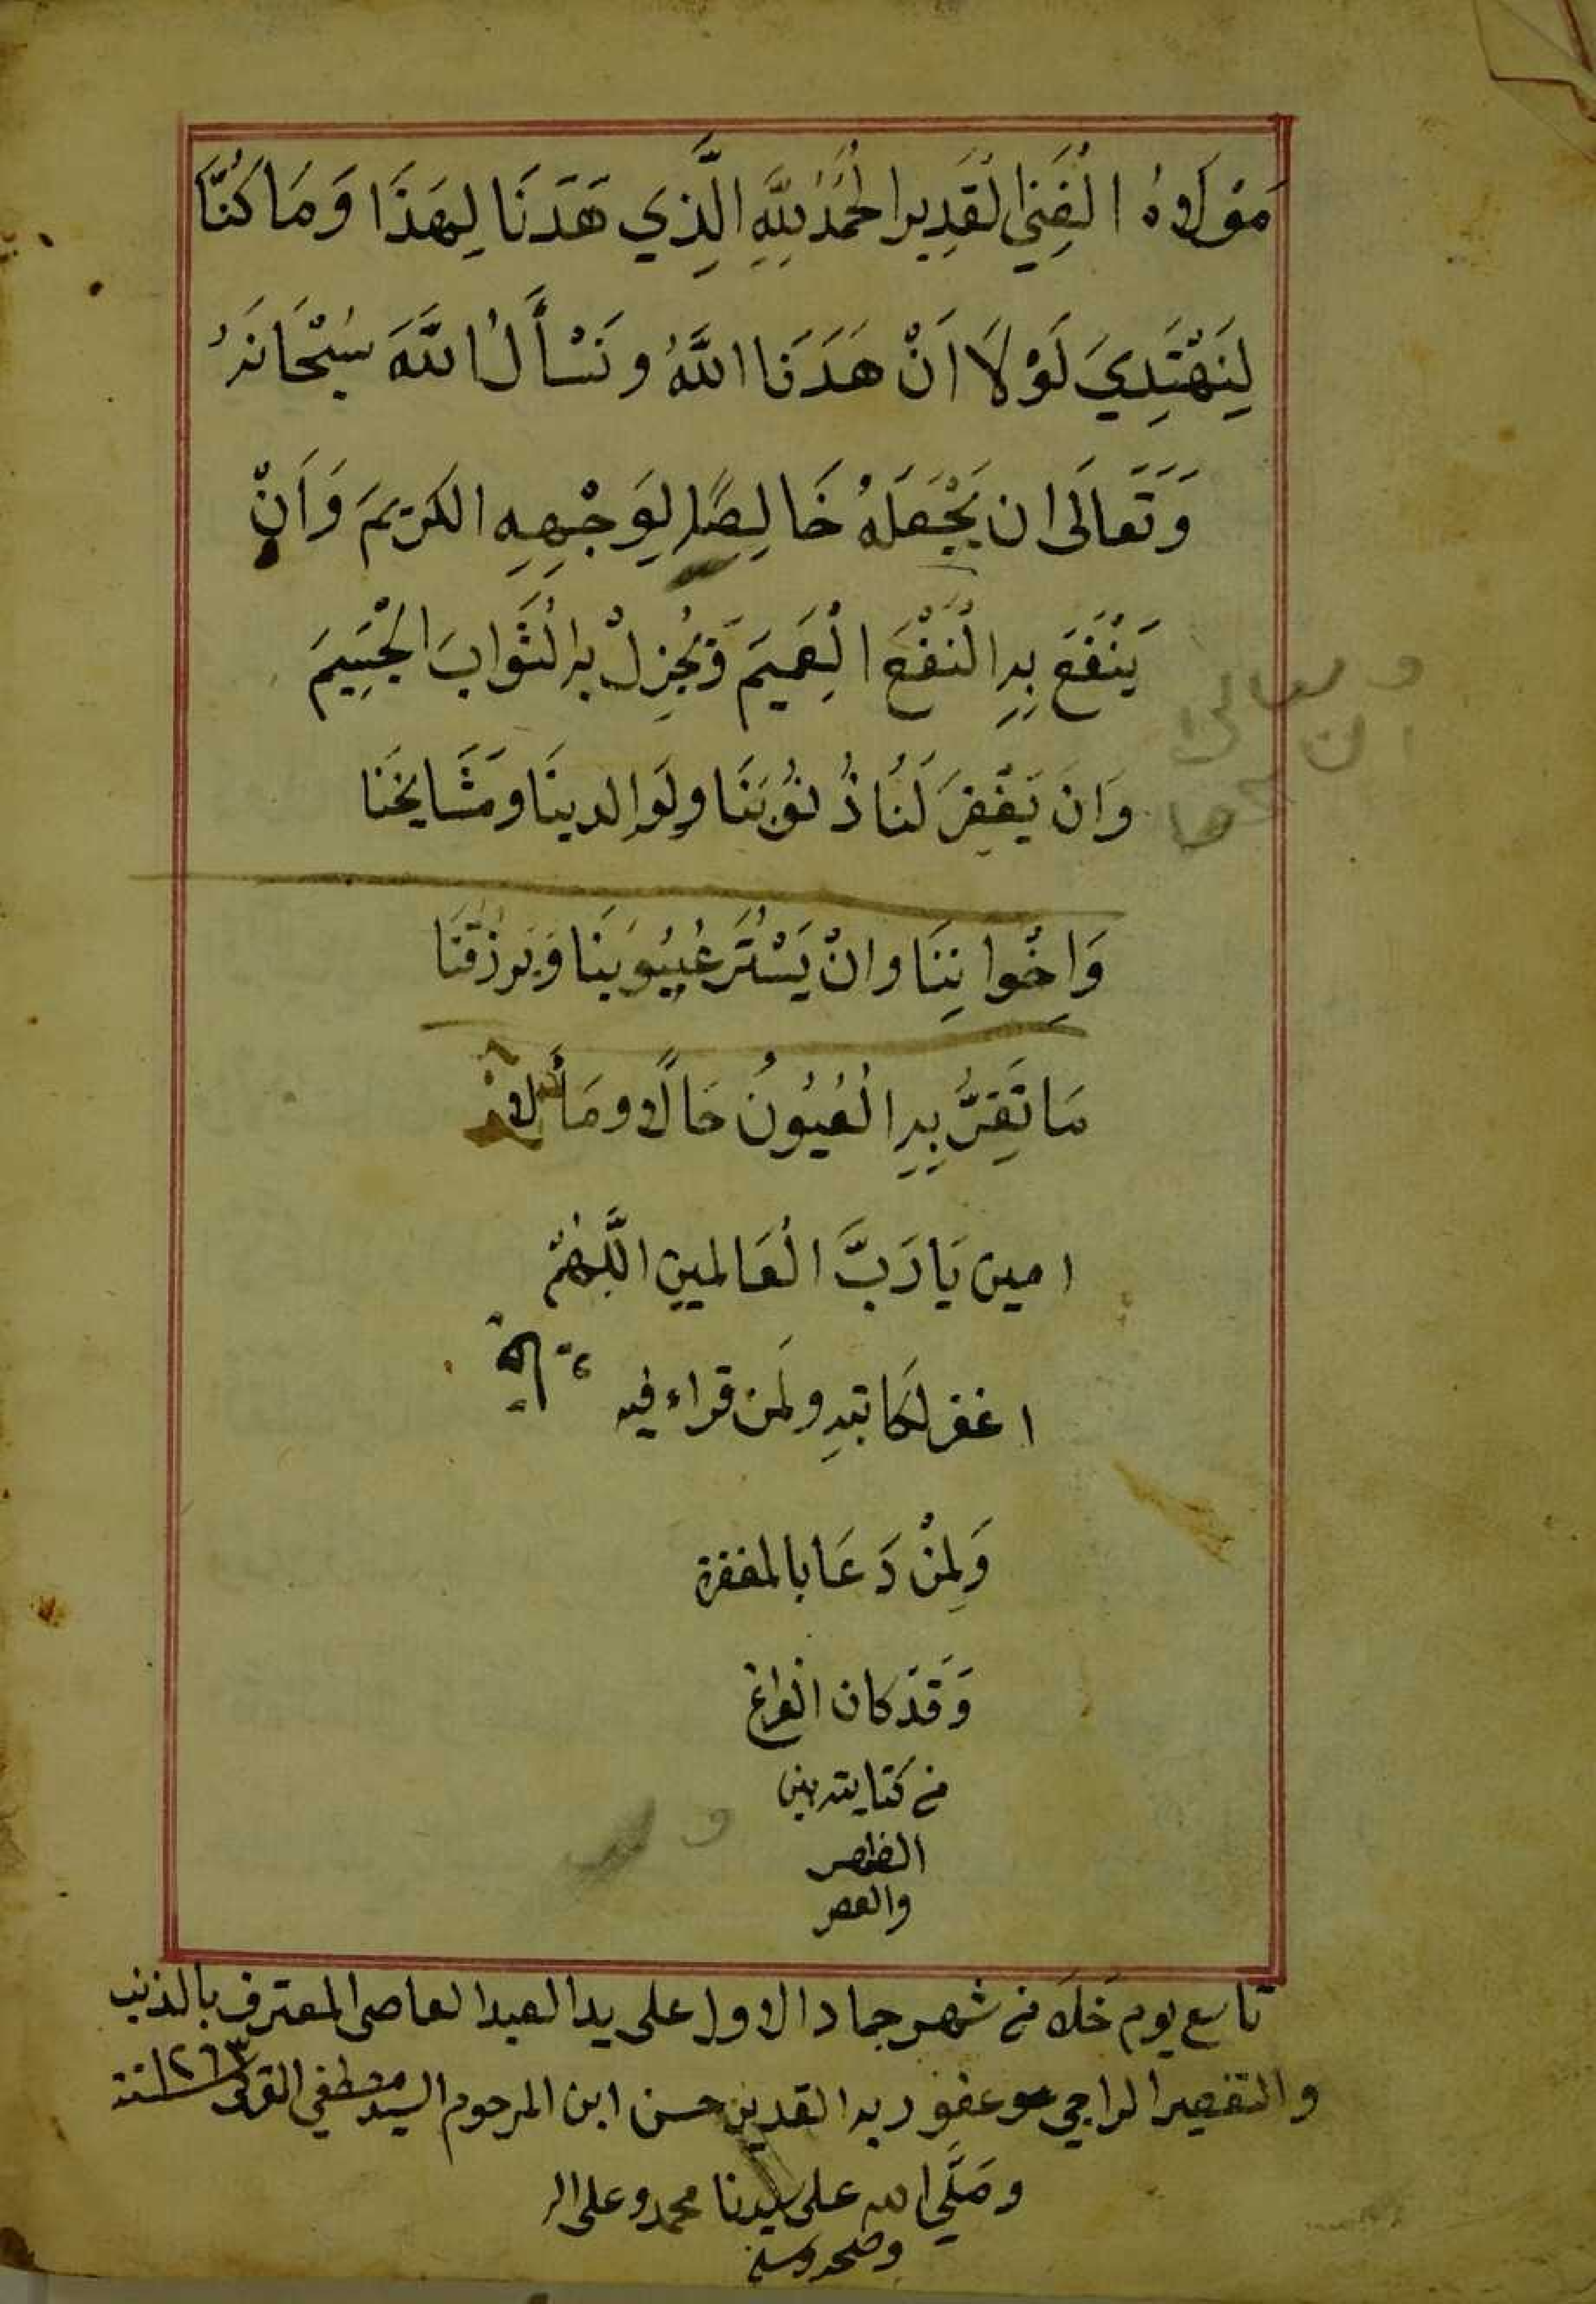 مَوْلَاهُ الْغَنِيُّ الْقَدِير الْحَمْدُ لِلَّهِ الَّذِي هَدَنَا لِهَذَا وَمَا كُنَّا
لِنَهْتَدِيَ لَوْلَا اَنْ هَدَنَا اللَّهُ ونَسْأَلُ اللَّهَ سُبْحَانَهُ
وَتَعَالَى ان يَجْعَلَهُ خَالِصًا لِوَجْهِهِ الكَرِيمَ وَاَنْ
يَنْفَعَ بِهِ الْنَفْعَ الْعَمِيَمَ وَيُجْزِلْ بِهِ الْثَّوَابَ الْجَسِيمَ
وَانَ يَغْفِرَ لَنَا ذُنُوْبَنَا ولِوَالدينَا ومَشَايخَنَا
وَاِخْوانِنَا وانْ يَسْتُرَ عُيُوبَنَا وَيَرْزُقْنَا
مَا تَقِرُّ بِهِ الْعُيُونُ حَالًا ومَأَلًا
امين يَا رَبَّ الْعَالمين اللَّهُمَّ
اغفر لكَاتبهِ ولمَن قراء فيه
وَلِمَنْ دَعَا بالمغفرة
وَقَدَ كان الفراغ
من كتابته بين
الظهر
والعصر
تاسع يوم خَلَا من شهر جماد الاول على يد العبد العاصى المعترف بالذنب
والتقصير الراجي عفو ربه القدير حسن ابن المرحوم السيد مصطفي سنة ١٢٦٣
وصَلَّي الله على سيدنا محمد وعلى اله
وصحبه وسلم